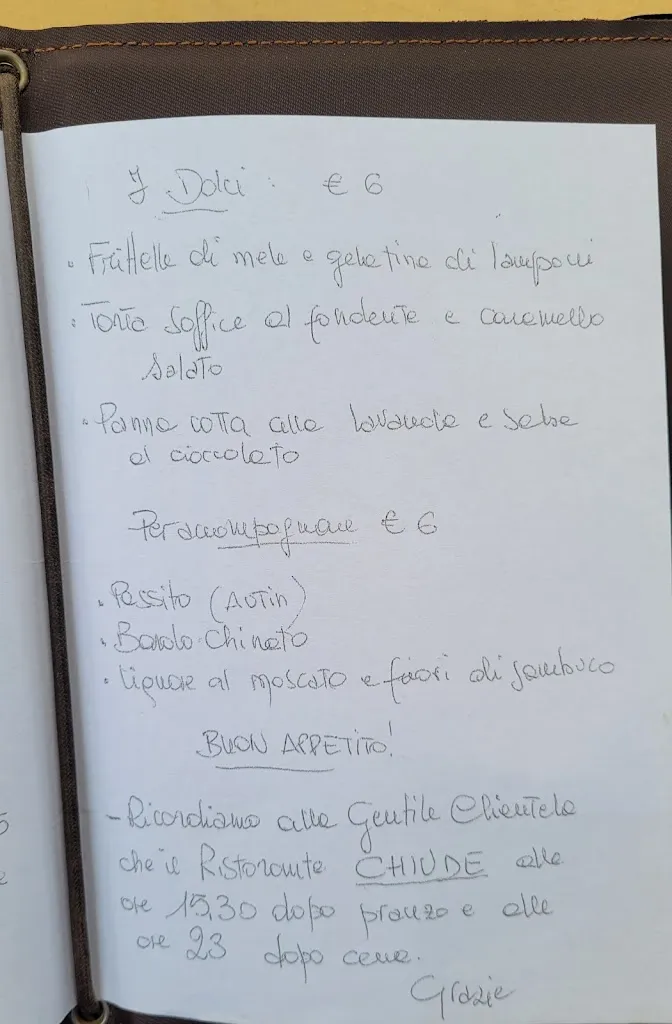 I Dolci : € 6
• Frittelle di mele e gelatina di lamponi
• Torta soffice al fondente e caramello
salato
• Panna cotta alla lavanda e salsa
al cioccolato
Per accompagnare € 6
• Passito (AUTIN)
• Barolo Chinato
• Liquore al moscato e fiori di sambuco
BUON APPETITO!
- Ricordiamo alla Gentile Clientela
che il Ristorante CHIUDE alle
ore 15,30 dopo pranzo e alle
ore 23 dopo cena.
Grazie